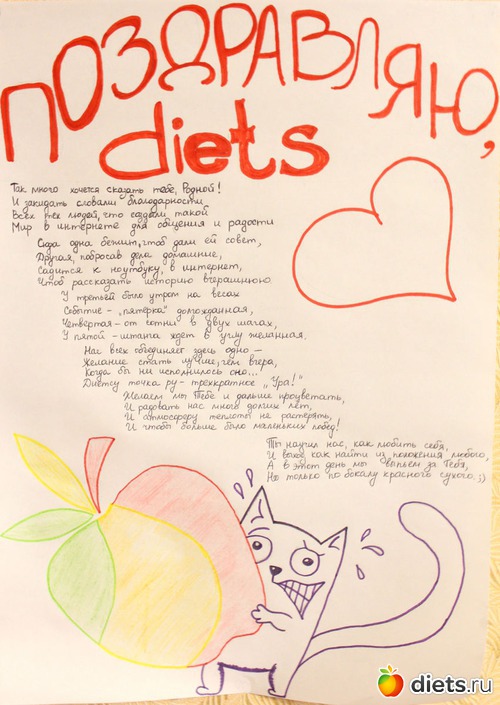 ПОЗДРАВЛЯЮ,
diets
Так много хочется сказать тебе, Родной!
И закидать словами благодарности
Всех тех людей, что создали такой
Мир в интернете для общения и радости
Сюда одна бежит, чтоб дали ей совет,
Другая, побросав дела домашние,
Садится к ноутбуку, в интернет,
Чтоб рассказать историю вчерашнюю.
У третьей было утром на весах
Событие - „пятёрка" долгожданная,
Четвертая - от сотни в двух шагах,
У пятой - штанга ждет в углу желанная.
Нас всех объединяет здесь одно -
Желание стать лучше, чем вчера,
Когда бы ни исполнилось оно...
Диетсу точка. ру - трехкратное „Ура!"
Желаем мы Тебе и дальше процветать,
И радовать нас много долгих лет,
И атмосферу теплоты не растерять,
И чтобы больше было маленьких побед!
Ты научил нас, как любить себя,
И выход как найти из положения любого,
А в этот день мы выпьем за Тебя,
Но только по бокалу красного сухого. ;))
diets.ru